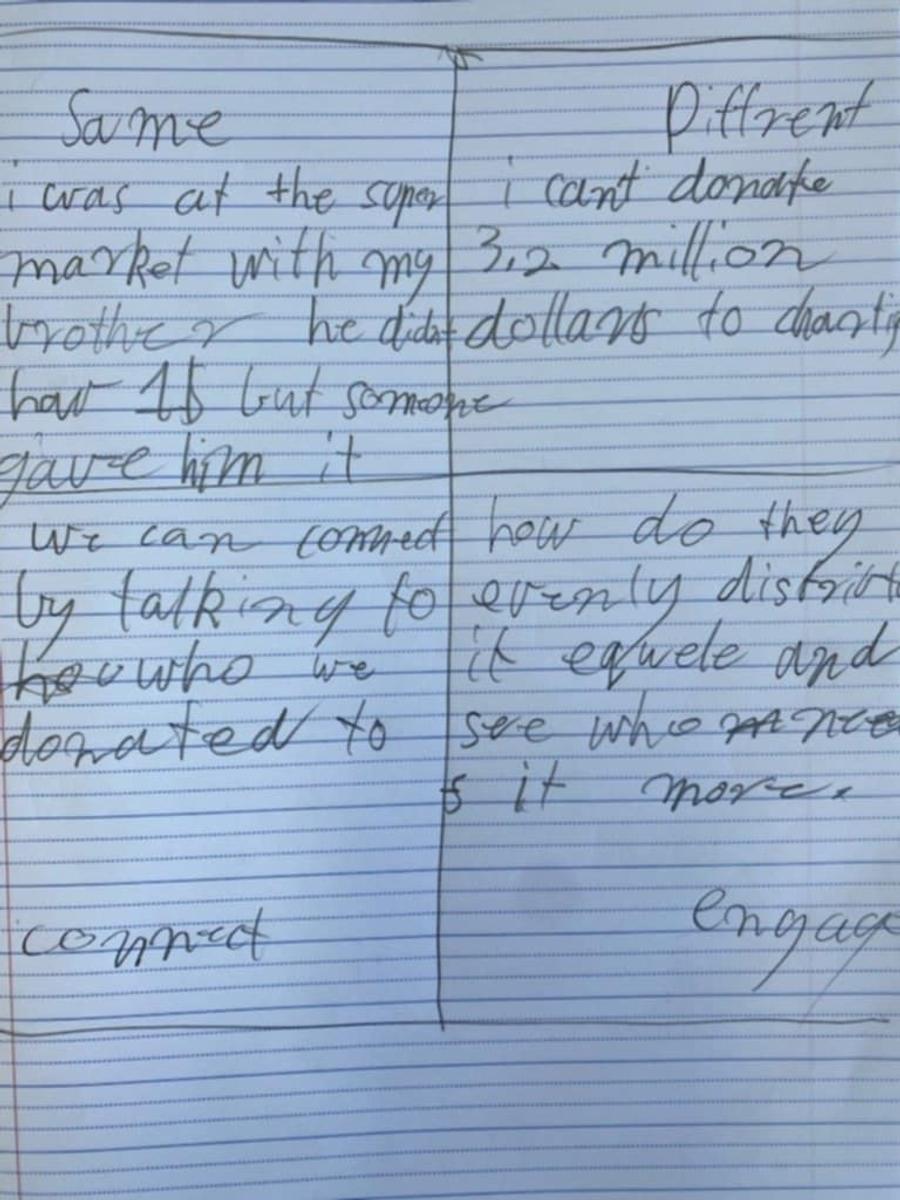 Same
i was at the super
market with my
brother he didnt
hav 1$ but someone
gave him it
Diffrent
i can't donate
3.2 million
dollars to
we can connect
by talking to
who we
donated to
connect
how do they
evenly distribt
it equele and
see who nee
s it more.
engage